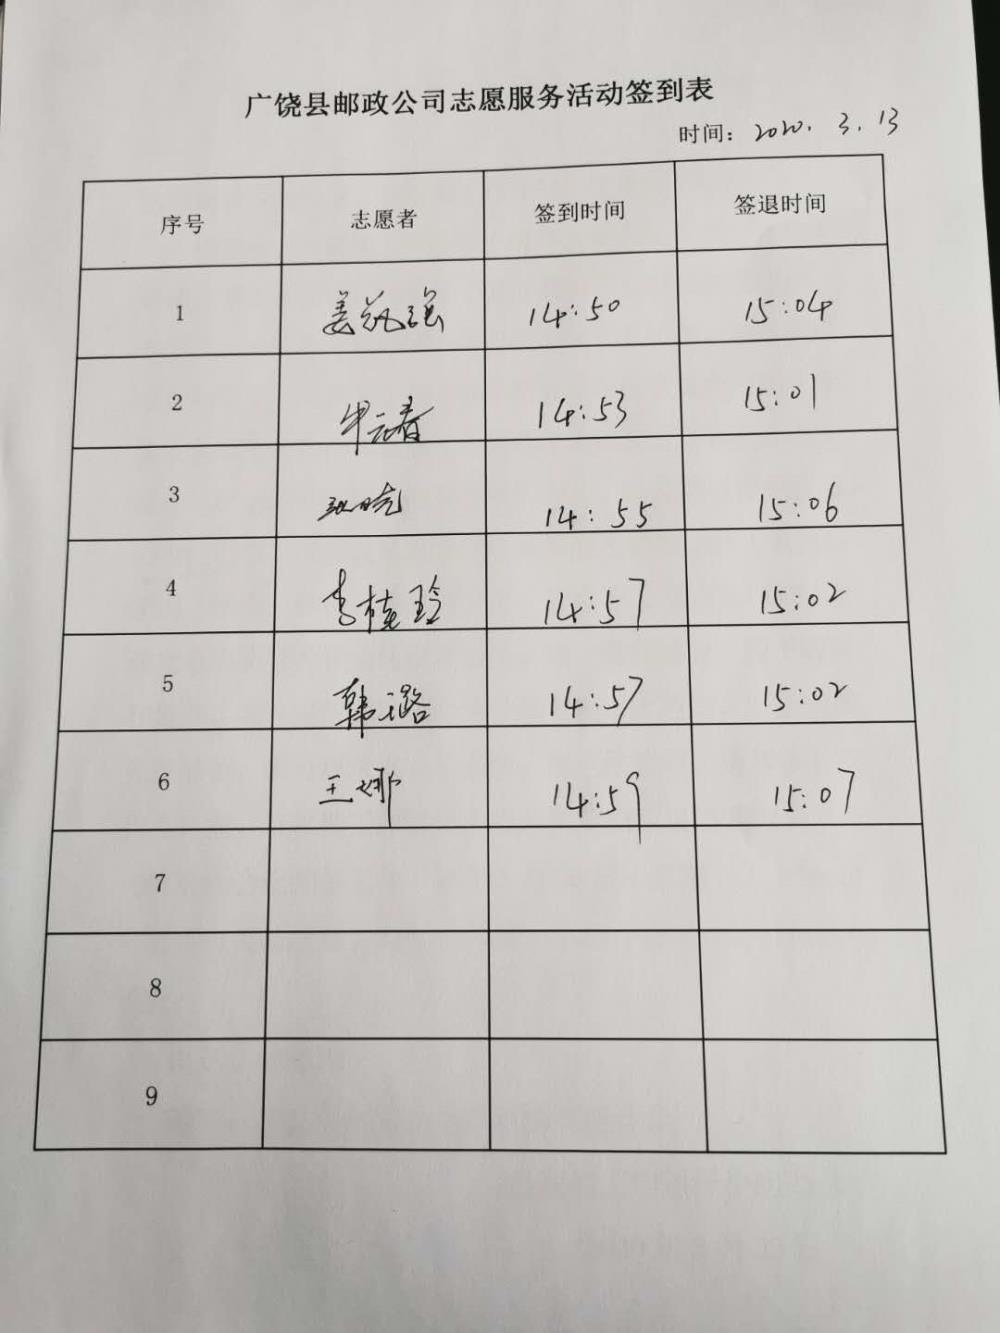 广饶县邮政公司志愿服务活动签到表
时间：2020. 3. 13
序号 志愿者 签到时间 签退时间
1 姜 强 14:50 15:04
2 14:53 15:01
3 张晓 14:55 15:06
4 李桂玲 14:57 15:02
5 韩璐 14:57 15:02
6 王娜 14:59 15:07
7
8
9